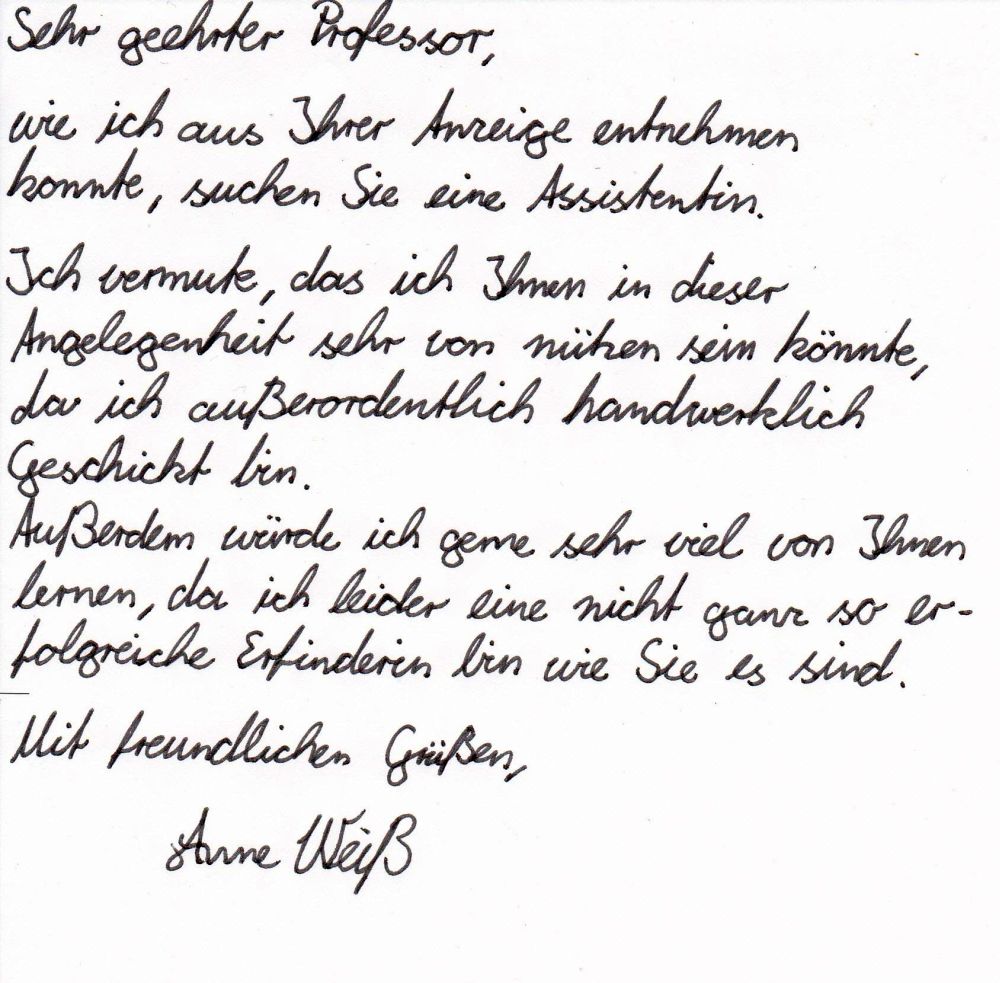 Sehr geehrter Professor,
wie ich aus Ihrer Anzeige entnehmen
konnte, suchen Sie eine Assistentin.
Ich vermute, das ich Ihnen in dieser
Angelegenheit sehr von nützen sein könnte,
da ich außerordentlich handwerklich
Geschickt bin.
Außerdem würde ich gerne sehr viel von Ihnen
lernen, da ich leider eine nicht ganz so er-
folgreiche Erfinderin bin wie Sie es sind.
Mit freundlichen Grüßen,
Anne Weiß